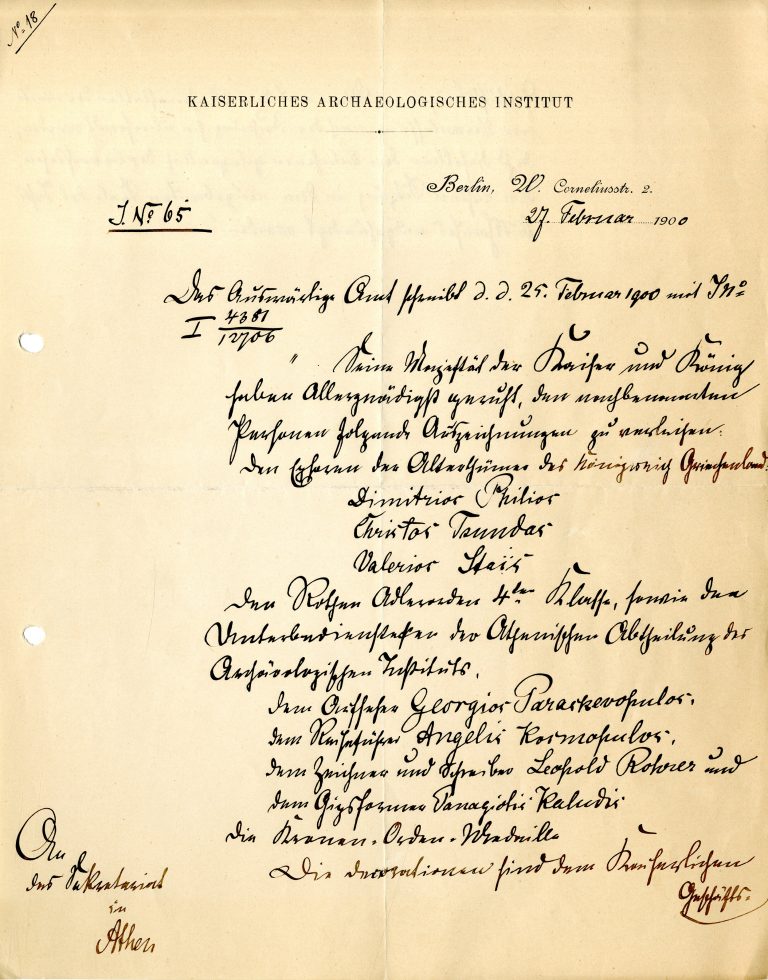 No. 18
KAISERLICHES ARCHAEOLOGISCHES INSTITUT
Berlin, W. Corneliusstr. 2.
J. No 65
27. Februar 1900
Das Auswärtige Amt schreibt d. d. 25. Februar 1900 mit J No
I 4381
12706
" Seine Majestät der Kaiser und König
haben Allergnädigst geruht, den nachbenannten
Personen folgende Auszeichnungen zu verleihen:
den Ephoren der Alterthümer des Königreich Griechenland:
Dimitrios Philios
Christos Tsundas
Valerios Staïs
den Rothen Adlerorden 4ter Klasse, sowie den
Unterbediensteten der Athenischen Abtheilung des
Archäologischen Instituts,
dem Aufseher Georgios Paraskevopulos,
dem Angelis Kosmopulos,
dem Zeichner und Schreiber Leopold Rohrer und
dem Gipsformer Panagiotis Kaludis
die Kronen-Orden-Medaille
Die Decorationen sind dem Kaiserlichen
Geschäfts-
An
das Sekretariat
in
Athen